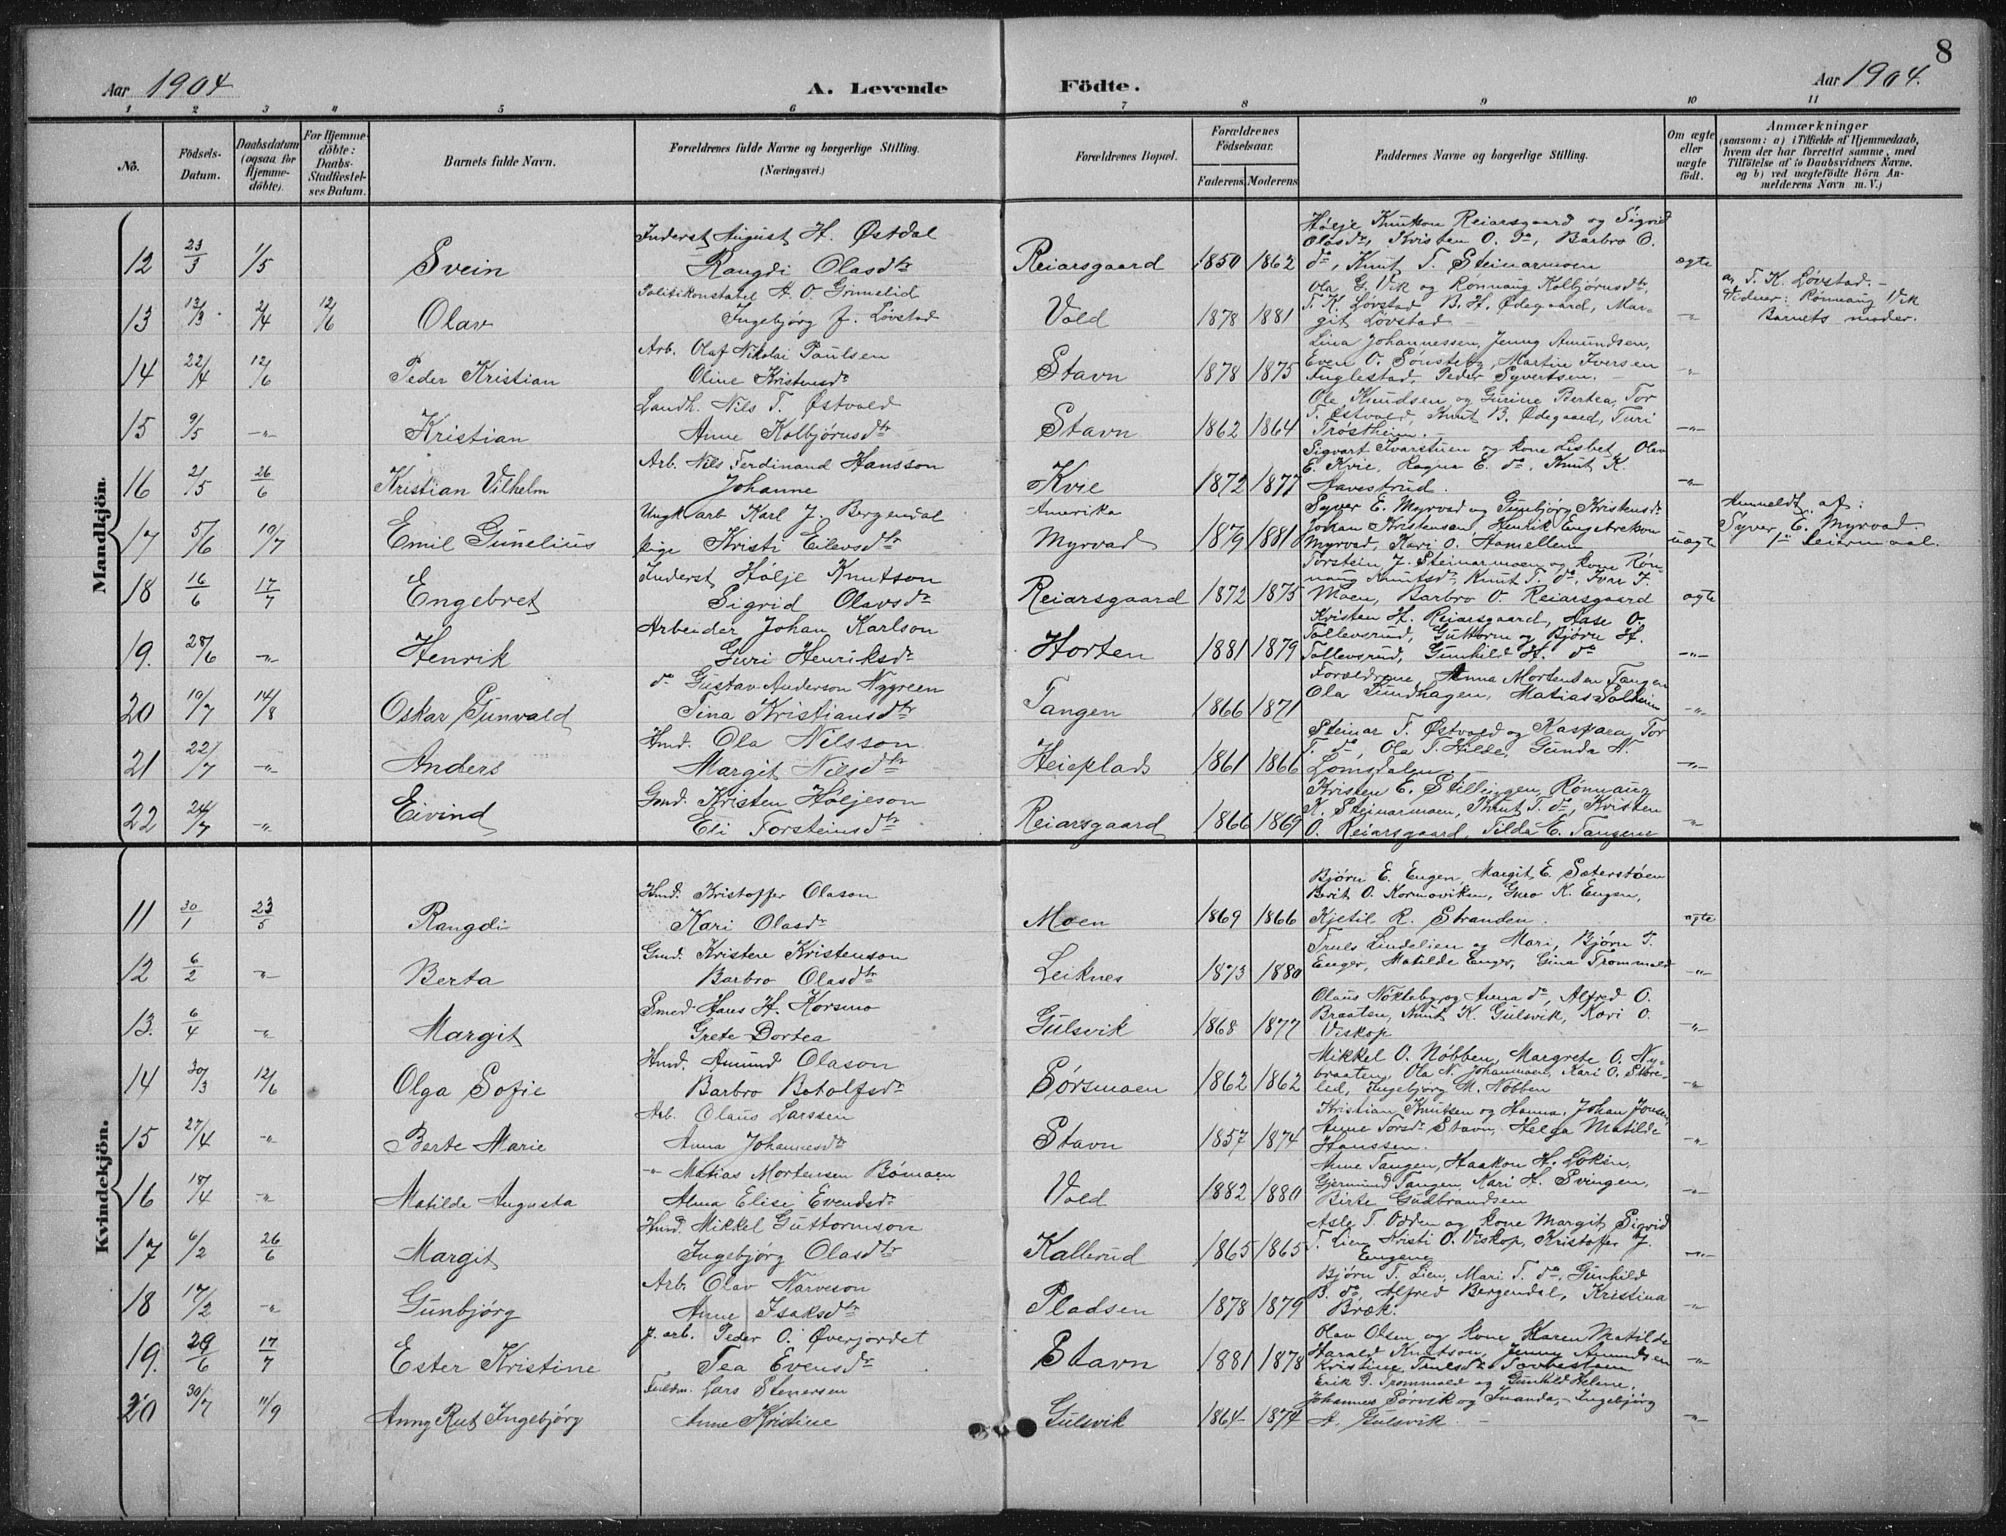 8
Aar 1904
A. Levende Födte.
Aar 1904.
1 2 3 4 5 6 7 8 9 10 11
No.
Födsels-Datum.
Daabsdatum (ogsaa for Hjemme-döbte).
For Hjemme-döbte: Daabs-Stadfæstel-ses Datum.
Barnets fulde Navn.
Forældrenes fulde Navne og borgerlige Stilling. (Næringsvei.)
Forældrenes Bopæl.
Forældrenes Födselsaar.
Faderens Moderens
Faddernes Navne og borgerlige Stilling.
Om ægte eller uægte födt.
Anmærkninger
(saasom: a) i Tilfælde af Hjemmedaab,
hvem der har forrettet samme, med
Tilföielse af to Daabsvidners Navne.
og b) ved uægtefödte Börn An-
melderens Navn m. V.)
Mandkjön.
Inderst August H. Østdal Hølje Knutson Reiarsgaard og Sigrid
Olasdr, Kristen O. do, Barbro O.
12 23/3 1/5 Svein Rangdi Olasdtr Reiarsgaard 1850 1862 do, Knut T. Steinarmoen ægte
Politikonstabel H. O. Grimelid Ola G. Vik og Rønnaug Kolbjørnsdtr, a, T. K. Løvstad.-
13 13/3 2/4 12/6 Olav Ingebjørg J. Løvstad Vold 1878 1881 T. K. Løvstad B. H. Ødegaard, Mar- -"- Vidner: Rønnaug Vik
git Løvstad - Barnets moder.
Arb. Olaf Nikolai Paulsen Lina Johannessen, Jenny Amundsen,
14 22/4 12/6 Peder Kristian Oline Kristensdr Stavn 1878 1875 Even O. Sønsteby, Martin Iversen -"-
Fuglestad, Peder Syvertsen. -
Landh. Nils T. Østvold Ole Knudsen og Gurine Bertea, Tor
15 9/5 -"- Kristian Anne Kolbjørnsdtr Stavn 1862 1864 T. Østvold, Knut B. Ødegaard, Turi -"-
Trøstheim. -
Arb. Nils Ferdinand Hansson Sigvart Ivarstuen og kone Lisbet, Olav
16 21/5 26/6 Kristian Vilhelm Johanne Kvie 1872 1877 E. Kvie, Ragna E. do, Knut K. -"-
Havestrud.
Ungk. arb Karl J. Bergendal Amerika Syver E. Myrvad og Gunbjørg Kristensdr Anmeldt af:
17 5/6 10/7 Emil Gunelius pige Kristi Eilevsdtr Myrvad 1879 1881 Johan Kristensen, Henrik uægte Syver E. Myrvad.
Myrvad, Kari O.
Inderst Hølje Knutson Torstein J. Steinarmoen og kone Røn-
18 16/6 17/7 Engebret Sigrid Olavsdtr Reiarsgaard 1872 1875 naug Knutsdr, Knut T. do, Ivar T. ægte
Moen, Barbro O. Reiarsgaard
Arbeider Johan Karlson Kristen H. Reiarsgaard, Aase O.
19. 28/6 -"- Henrik Guri Henriksdr Horten 1881 1879 Tollevsrud, Guttorm og Bjørn H. -"-
Tollevsrud, Gunhild H. do
do Gustav Anderson Nygreen Forældrene, Anna Mortensen Tangen
20 10/7 14/8 Oskar Gunvald Tina Kristiansdtr Tangen 1866 1871 Ola Lundhagen, Matias Solheim -"-
Hmd. Ola Nilsson Steinar T. Østvold og Kaspara, Tor
21 22/7 -"- Anders Margit Nilsdtr Heieplads 1861 1866 T. do, Ola T. Hilde, Gunda N. -"-
Lomsdalen. -
Gmd. Kristen Høljeson Kristen E. Stillingen, Rønnaug
22 24/7 -"- Eivind Eli Torsteinsdtr Reiarsgaard 1866 1869 K. Steinarmoen, Knut T. do, Kristen -"-
O. Reiarsgaard, Tilda E. Tangene
Kvindekjön.
Hmd. Kristoffer Olason Bjørn E. Engen, Margit E. Seterstøen
Berit O. Kormoviken, Guro K. Engen,
11 30/1 23/5 Rangdi Kari Olasdr Moen 1869 1866 Kjetil R. Stranden. ægte
Gmd. Kristen Kristenson Truls Lindelien og Mari, Bjørn T.
12 6/2 -"- Berta Barbro Olasdtr Leiknes 1873 1880 Enger, Matilde Enger, Gina Trommald -"-
Smed Hans H. Korsmo Olaus Nøkleby og Anna do, Alfred O.
13. 6/4 -"- Margit Grete Dortea Gulsvik 1868 1877 Braaten, Knut K. Gulsvik, Kari O. -"-
Viskop
Hmd. Amund Olason Mikkel O. Nøbben, Margrete O. Ny-
14 30/3 12/6 Olga Sofie Barbro Botolfsdr Sørsmoen 1862 1862 braaten, Ola N. Johanmoen, Kari O. Støre- -"-
lid, Ingebjørg M. Nøbben
Arb. Olaus Larssen Kristian Knutsen og Hanna, Johan Jonsen
15 27/4 -"- Berte Marie Anna Johannesdr Stavn 1857 1874 Anne Torsdr Stavn, Helga Matilde -"-
Hanssen.
-"- Matias Mortensen Bømoen Anne Tangen, Haakon H. Løken,
16 18/4 -"- Matilde Augusta Alma Elise Evensdr Vold 1882 1880 Gjermund Tangen, Kari H. Svingen, -"-
Birte Gudbrandsen
Hmd. Mikkel Guttormson Asle T. Odden og kone Margit, Sigrid
17 6/2 26/6 Margit Ingebjørg Olasdtr Kallerud 1865 1865 T. Lien, Kristi O. Viskop, Kristoffer J. -"-
Engene
Arb. Olav Narveson Bjørn T. Lien, Mari T. do, Gunhild
18 17/2 -"- Gunbjørg Anne Isaksdtr Pladsen 1878 1879 B. do, Alfred Bergendal, Kristina -"-
Bræk.
J. arb. Peder O. Øverjordet Olav Olsen og kone Karen Matilde
19. 26/6 17/7 Ester Kristine Tea Evensdr Stavn 1881 1878 Harald Knutson, Jenny Amundsen -"-
Kristine Trulsdr
Fuldm. Lars Stenersen Erik G. Trommald og Gunhild Helene,
20 30/7 11/9 Anny Rut Ingebjørg Anne Kristine Gulsvik 1864 1874 Johannes Sørvik og Inanda, - Ingebjørg -"-
A. Gulsvik. -